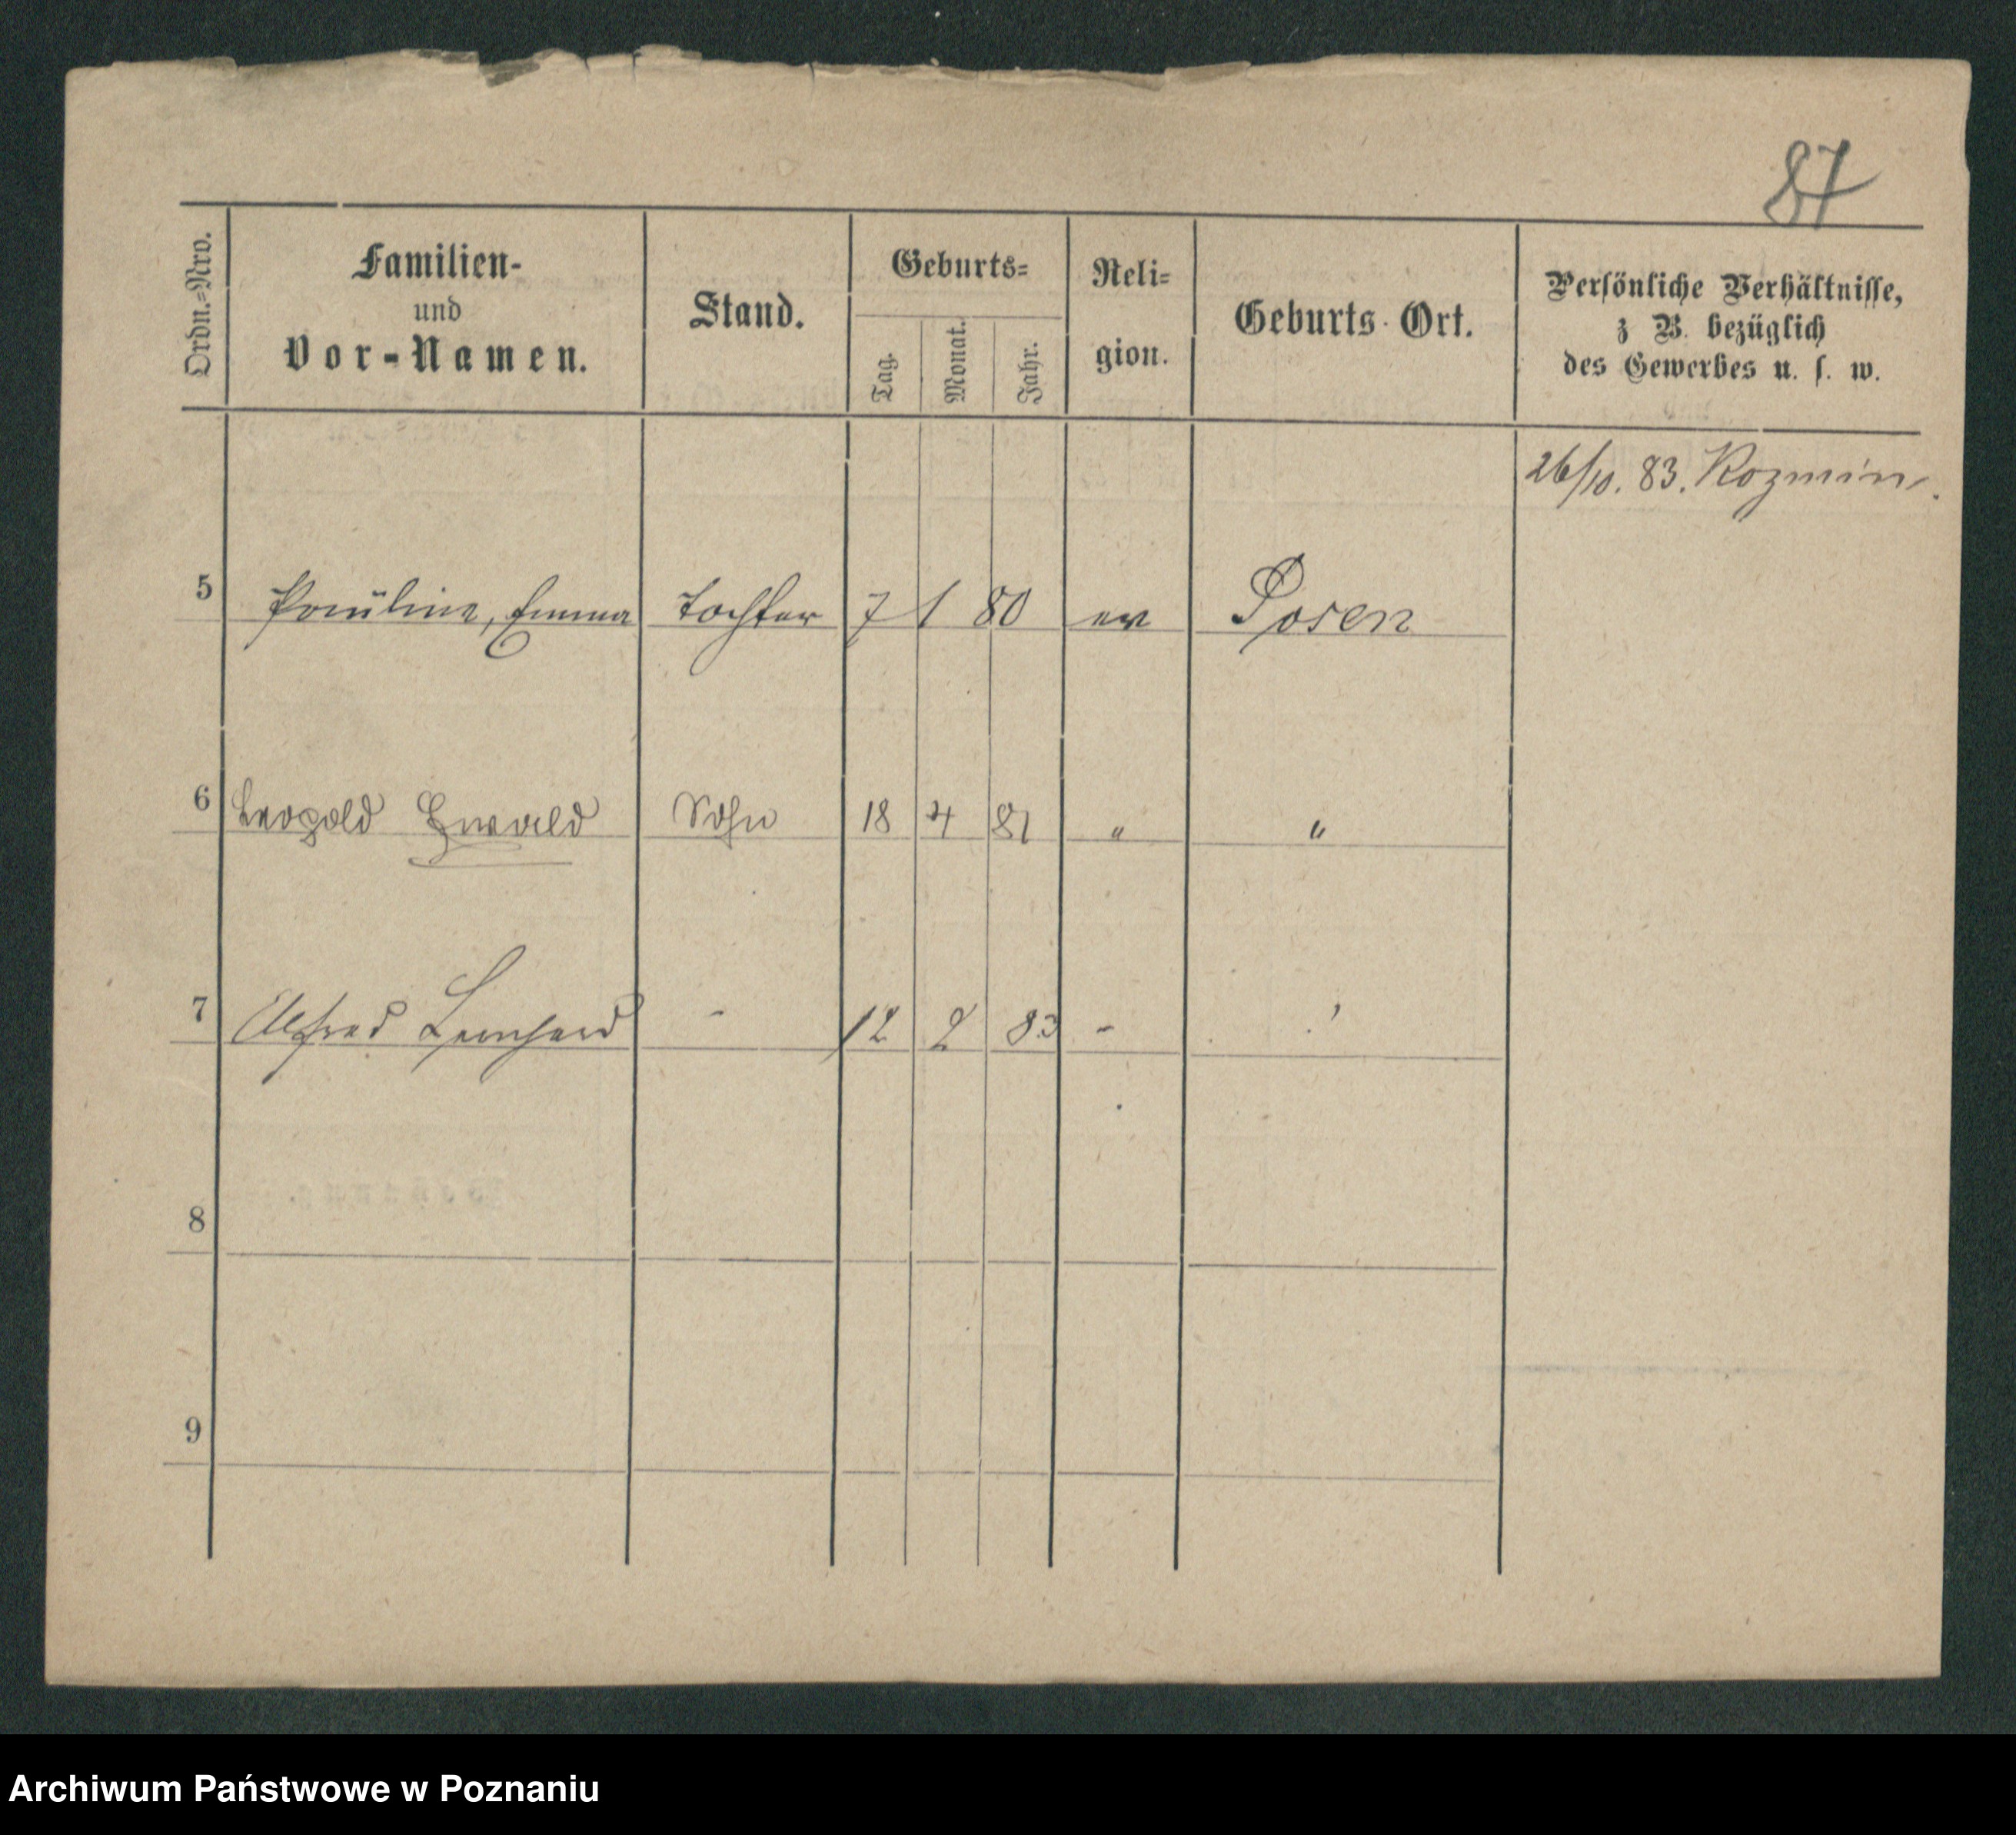 87
Ordn.=Nro.
Familien-
und
Vor-Namen.
Stand.
Geburts=
Tag.
Monat.
Jahr.
Reli=
gion.
Geburts-Ort.
Persönliche Verhältnisse,
z B. bezüglich
des Gewerbes u. s. w.
26/10. 83. Kozmin.
5 Pauline, Emma Tochter 7 1 80 ev Posen
6 Leopold Ewald Sohn 18 4 81 " "
7 Alfred - 12 2 83 - "
8
9
Archiwum Państwowe w Poznaniu